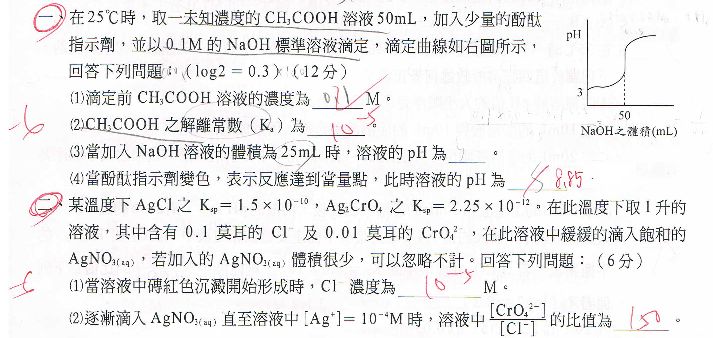 一、在25℃時，取一未知濃度的 CH₃COOH 溶液 50mL，加入少量的酚酞
指示劑，並以 0.1M 的 NaOH 標準溶液滴定，滴定曲線如右圖所示，
回答下列問題：（log2 = 0.3）（12 分）
(1)滴定前 CH₃COOH 溶液的濃度為 0.1 M。
(2)CH₃COOH 之解離常數（Kₐ）為 10⁻⁵。
(3)當加入 NaOH 溶液的體積為 25mL 時，溶液的 pH 為 。
(4)當酚酞指示劑變色，表示反應達到當量點，此時溶液的 pH 為 8.85。
-6
pH
3
50
NaOH之體積(mL)
二、某溫度下 AgCl 之 Kₛₚ = 1.5 × 10⁻¹⁰，Ag₂CrO₄ 之 Kₛₚ = 2.25 × 10⁻¹²。在此溫度下取 1 升的
溶液，其中含有 0.1 莫耳的 Cl⁻ 及 0.01 莫耳的 CrO₄²⁻，在此溶液中緩緩的滴入飽和的
AgNO₃(aq)，若加入的 AgNO₃(aq) 體積很少，可以忽略不計。回答下列問題：（6分）
(1)當溶液中磚紅色沉澱開始形成時，Cl⁻ 濃度為 10⁻⁵ M。
(2)逐漸滴入 AgNO₃(aq) 直至溶液中 [Ag⁺] = 10⁻⁴M 時，溶液中 [CrO₄²⁻]/[Cl⁻] 的比值為 150。